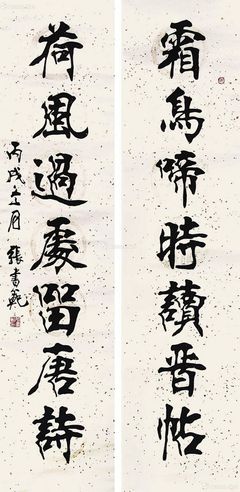 霜鳥啼時讀晉帖
荷風過處留唐詩
丙戌五月 張書範